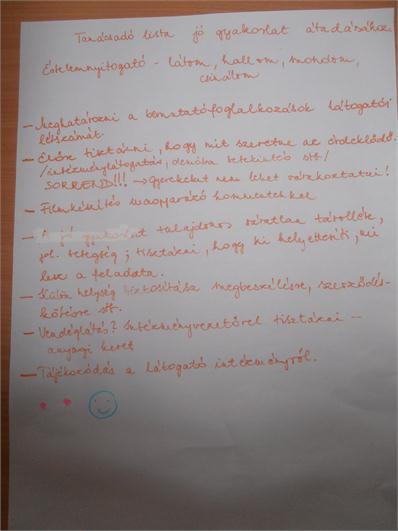 Tanácsadó lista jó gyakorlat átadásához
Értelemnyitogató - látom, hallom, mondom,
csinálom
- Meghatározni a bemutatófoglalkozások látogatói
létszámát.
- Előre tisztázni, hogy mit szeretne az érdeklődő.
/intézménylátogatás, óvodába betekintés stb/
SORREND!!! → Gyerekeket nem lehet várakoztatni!
- Filmkészítés magyarázó kommentekkel
- A jó gyakorlat tulajdonos váratlan távollét,
pl. betegség; tisztázni, hogy ki helyettesít, mi
lesz a feladata.
- Külön helység biztosítása megbeszélésre, szerződés-
kötésre stb.
- Vendéglátás? Intézményvezetővel tisztázni -
anyagi keret
- Tájékozódás a látogató intézményről.